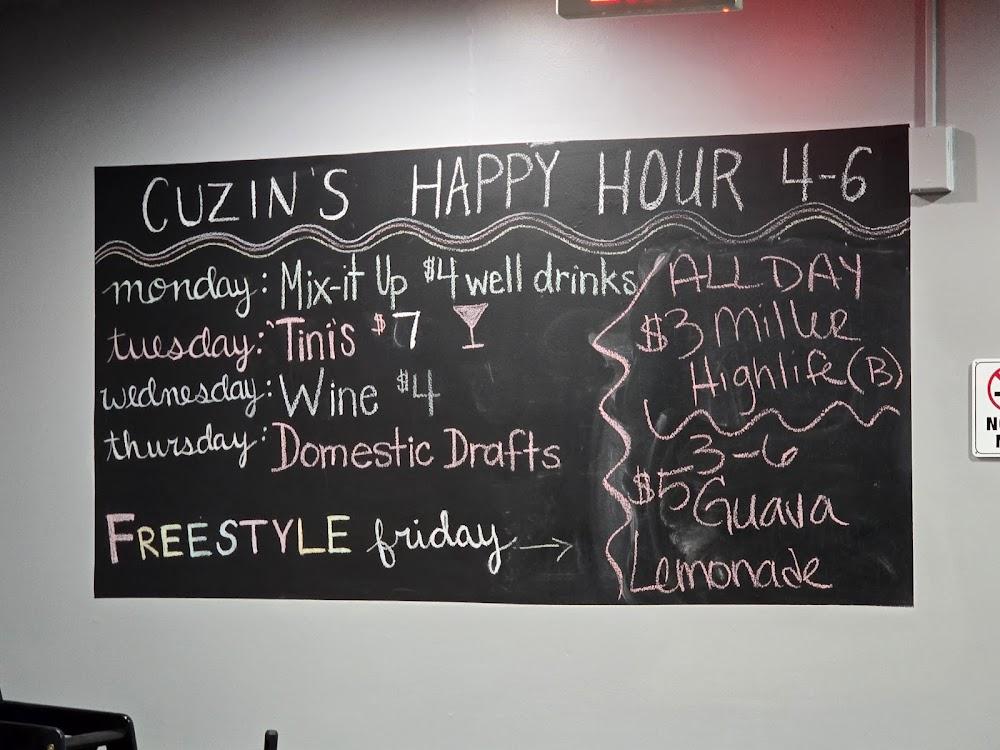 CUZIN'S HAPPY HOUR 4-6
monday: Mix-it Up $4 well drinks
tuesday: 'Tini's $7
wednesday: Wine $4
thursday: Domestic Drafts
FREESTYLE friday →
ALL DAY
$3 Miller
Highlife (B)
3-6
$5 Guava
Lemonade